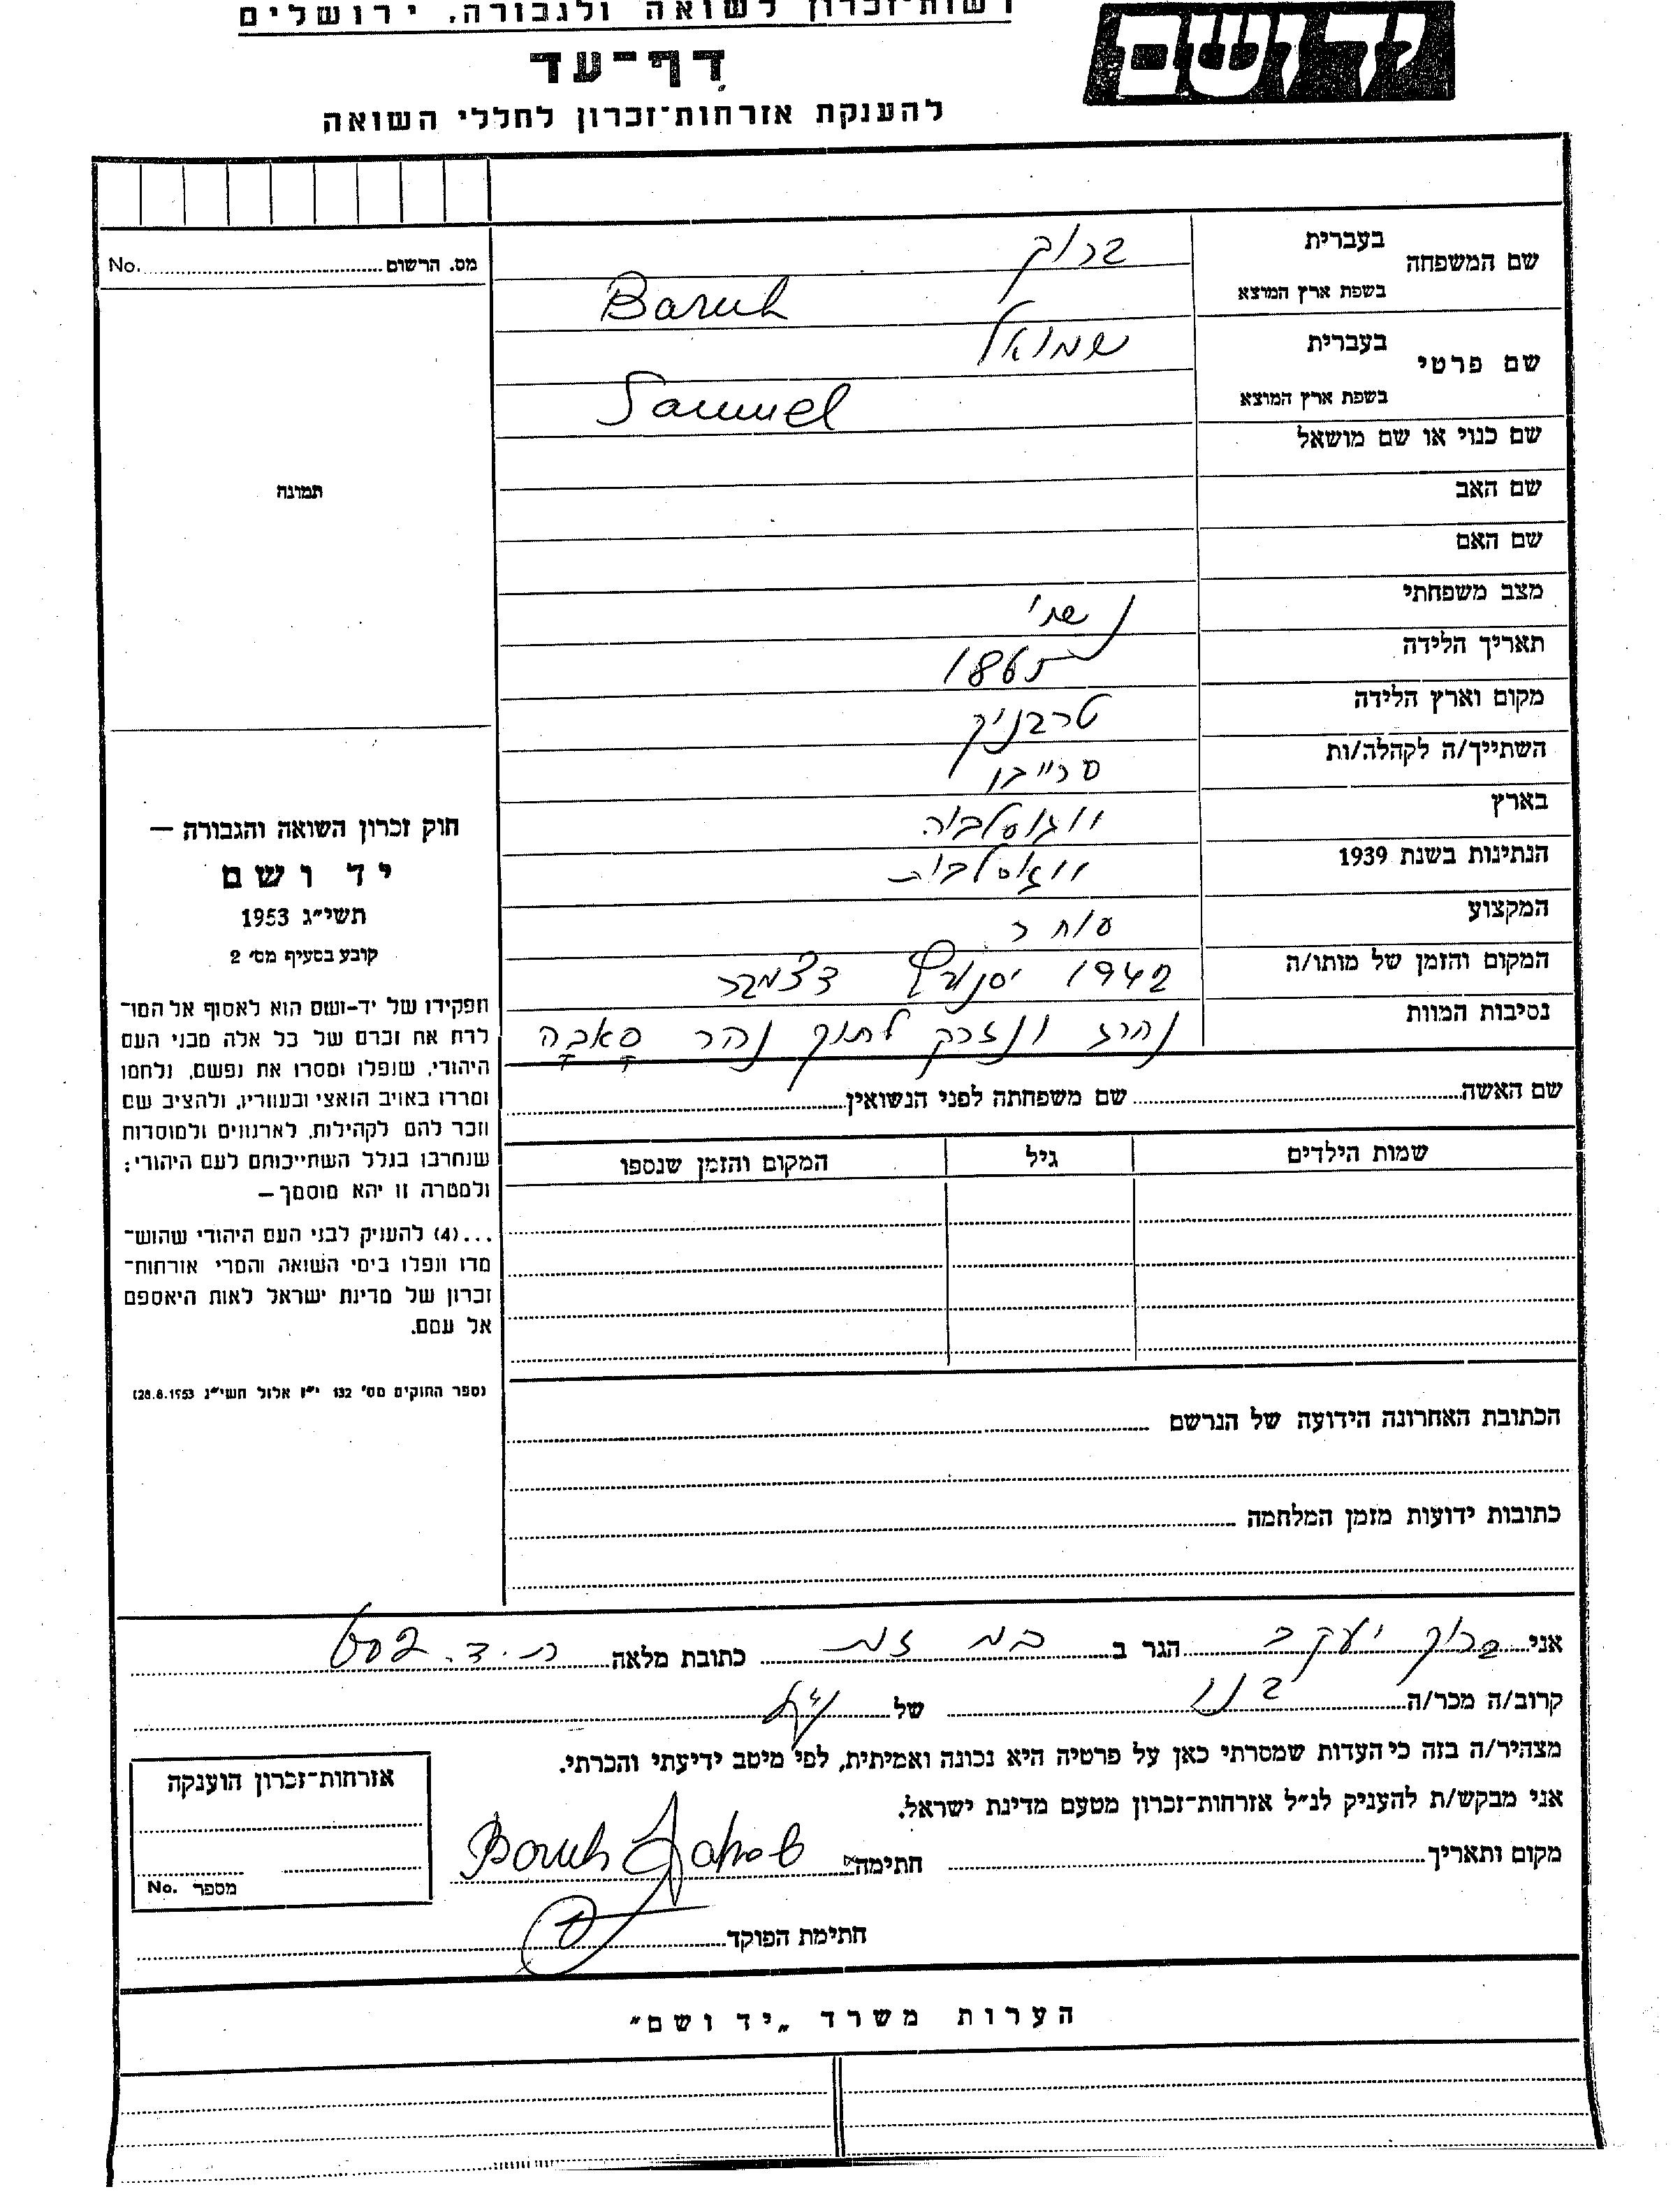 רשות-זכרון לשואה ולגבורה, ירושלים
יד ושם
דף-עד
להענקת אזרחות-זכרון לחללי השואה
מס. הרשום No.
שם המשפחה בעברית ברוך
בשפת ארץ המוצא Baruh
שם פרטי בעברית שמואל
בשפת ארץ המוצא Samuel
שם כנוי או שם מושאל
שם האב
שם האם
מצב משפחתי נשוי
תאריך הלידה 1865
מקום וארץ הלידה טרבניק
השתייך/ה לקהלה/ות סרייבו
בארץ יוגוסלביה
הנתינות בשנת 1939 יוגוסלבית
המקצוע סוחר
המקום והזמן של מותו/ה 1942 יסנובץ דצמבר
נסיבות המוות נהרג ונזרק לתוך נהר סָאבָה
שם האשה שם משפחתה לפני הנשואין
שמות הילדים גיל המקום והזמן שנספו
הכתובת האחרונה הידועה של הנרשם
כתובות ידועות מזמן המלחמה
תמונה
חוק זכרון השואה והגבורה –
יד ושם
תשי״ג 1953
קובע בסעיף מס׳ 2
תפקידו של יד-ושם הוא לאסוף אל המו־
לדת את זכרם של כל אלה מבני העם
היהודי, שנפלו ומסרו את נפשם, נלחמו
ומרדו באויב הנאצי ובעוזריו, ולהציב שם
וזכר להם לקהילות, לארגונים ולמוסדות
שנחרבו בגלל השתייכותם לעם היהודי;
ולמטרה זו יהא מוסמך –
...(4) להעניק לבני העם היהודי שהוש־
מדו ונפלו בימי השואה והמרי אזרחות־
זכרון של מדינת ישראל לאות היאספם
אל עמם.
(ספר החוקים מס׳ 132 י״ז אלול תשי״ג 28.8.1953)
אני ברוך יעקב הגר ב בת ים כתובת מלאה
קרוב/ה מכר/ה בנו של
מצהיר/ה בזה כי העדות שמסרתי כאן על פרטיה היא נכונה ואמיתית, לפי מיטב ידיעתי והכרתי.
אני מבקש/ת להעניק לנ״ל אזרחות-זכרון מטעם מדינת ישראל.
מקום ותאריך חתימה Boruh Jakob
חתימת הפוקד
אזרחות-זכרון הוענקה
מספר No.
הערות משרד „יד ושם״